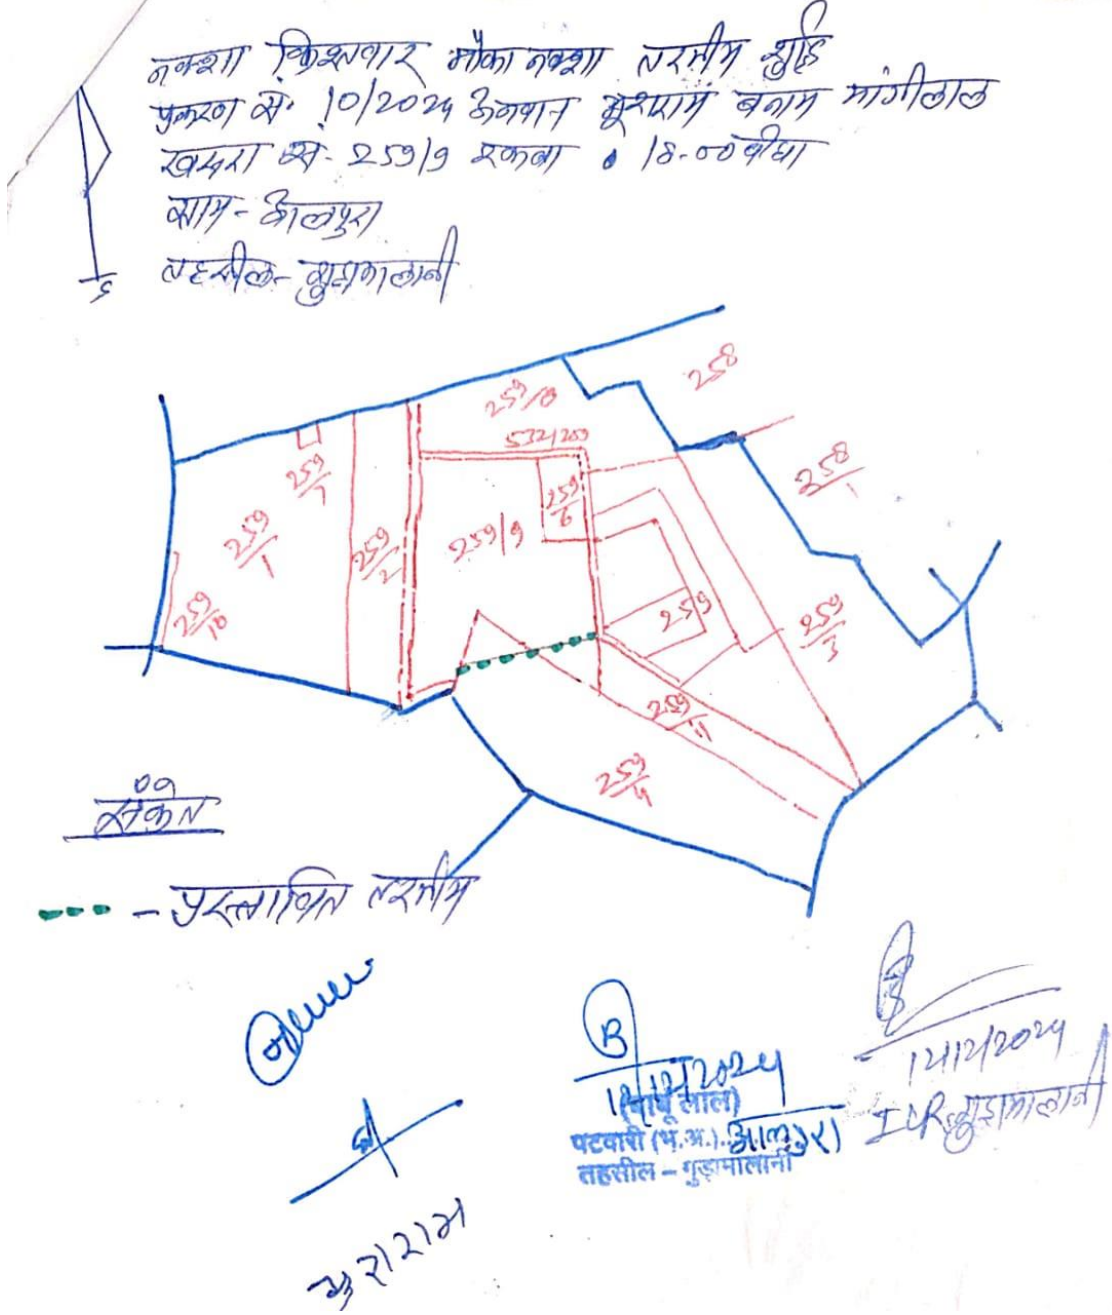 नक्शा किश्तवार मौका नक्शा तरमीम शुद्धि
प्रकरण सं. 10/2024 अनवान भूराराम बनाम मांगीलाल
खसरा सं- 259/9 रकबा 18-00 बीघा
ग्राम- आलपुरा
तहसील- गुडामालानी
258
259/8
532/259
258/1
259/7
259/6
259/1
259/2
259/9
259/10
259
259/3
259/11
259/4
संकेत
- प्रस्तावित तरमीम
B
12/12/2024
12/12/2024
(बाबू लाल)
पटवारी (भू.अ.) आलपुरा
ILR गुडामालानी
तहसील - गुड़ामालानी
भुराराम